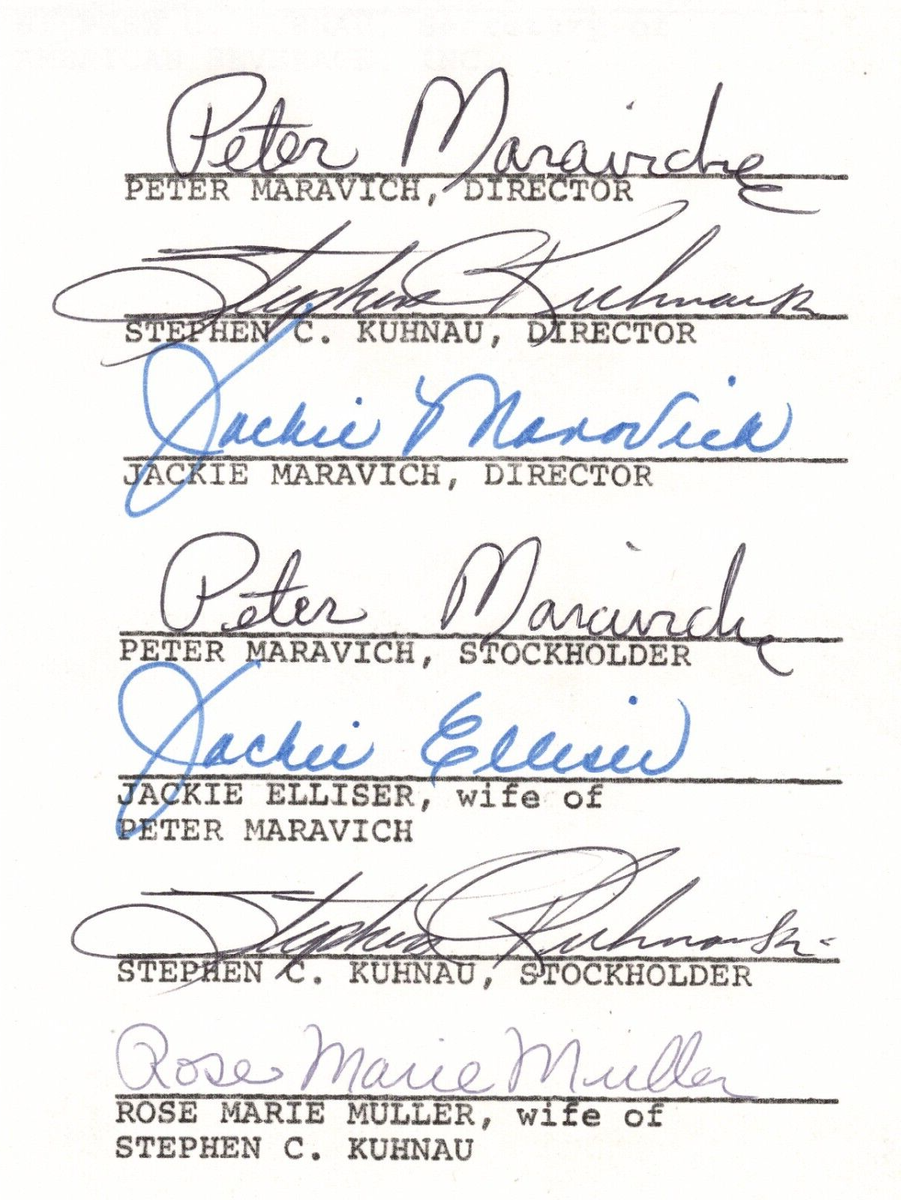 Peter Maravich
PETER MARAVICH, DIRECTOR
Stephen C Kuhnau
STEPHEN C. KUHNAU, DIRECTOR
Jackie Maravich
JACKIE MARAVICH, DIRECTOR
Peter Maravich
PETER MARAVICH, STOCKHOLDER
Jackie Elliser
JACKIE ELLISER, wife of
PETER MARAVICH
Stephen C Kuhnau
STEPHEN C. KUHNAU, STOCKHOLDER
Rose Marie Muller
ROSE MARIE MULLER, wife of
STEPHEN C. KUHNAU